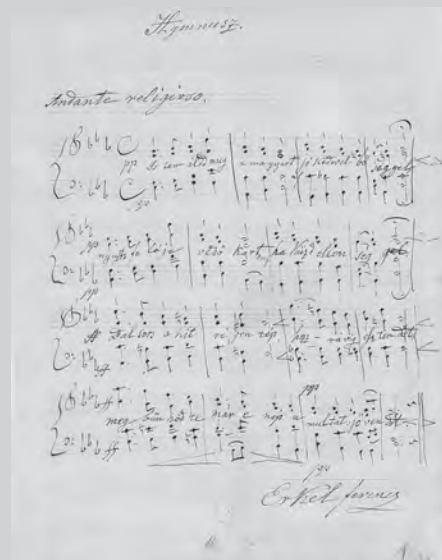 Hymnusz.
Andante religioso.
pp Is ten áld meg a magyart jó kedvvel bő séggel
nyujts fe léje védő kart, ha küzd ellen seg gel
pp
Bal sors a kit re gen tép, hoz rá víg
ff
ff meg bűn hőd te már e nép a multat jö ven
ff
pp
Erkel ferencz